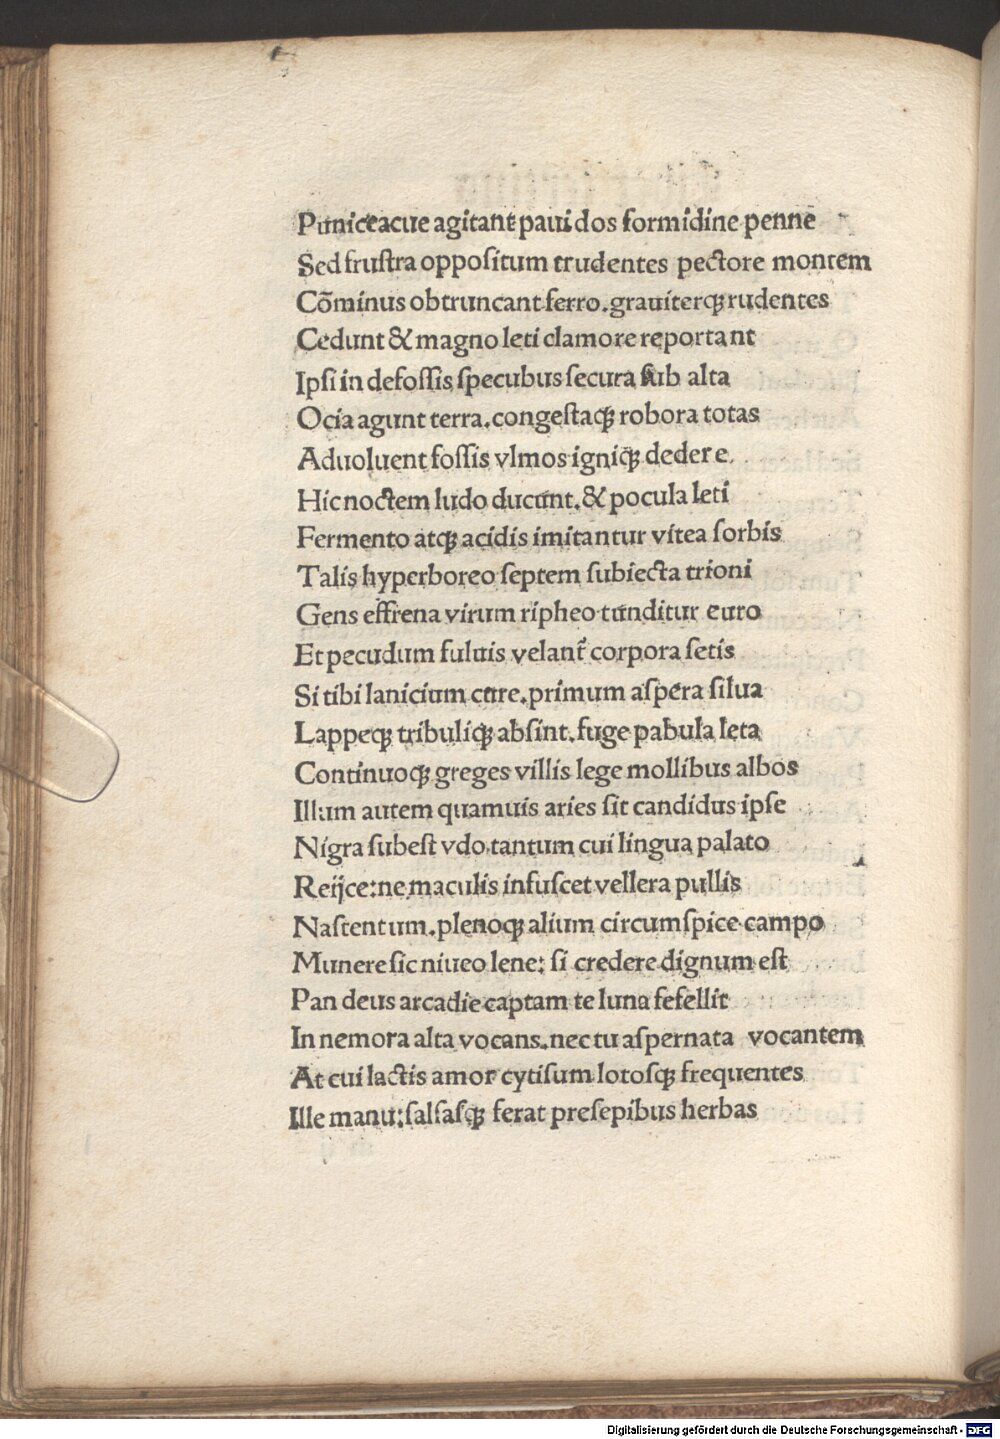 Puniceacue agitant pauidos formidine penne
Sed frustra oppositum trudentes pectore montem
Cõminus obtruncant ferro.grauiterqꝫ rudentes
Cedunt & magno leti clamore reportant
Ipsi in defossis specubus secura sub alta
Ocia agunt terra.congestaqꝫ robora totas
Aduoluent fossis vlmos igniqꝫ dedere.
Hic noctem ludo ducunt.& pocula leti
Fermento atqꝫ acidis imitantur vitea sorbis
Talis hyperboreo septem subiecta trioni
Gens effrena virum ripheo tunditur euro
Et pecudum fuluis velant̃ corpora setis
Si tibi lanicium cure.primum aspera silua
Lappeqꝫ tribuliqꝫ absint.fuge pabula leta
Continuoqꝫ greges villis lege mollibus albos
Illum autem quamuis aries sit candidus ipse
Nigra subest vdo tantum cui lingua palato
Reijce:ne maculis infuscet vellera pullis
Nastentum.plenoqꝫ alium circumspice campo
Munere sic niueo lene: si credere dignum est
Pan deus arcadie captam te luna fefellit
In nemora alta vocans.nec tu aspernata vocantem
At cui lactis amor cytisum lotosqꝫ frequentes
Ille manu:salsasqꝫ ferat presepibus herbas
Digitalisierung gefördert durch die Deutsche Forschungsgemeinschaft - DFG